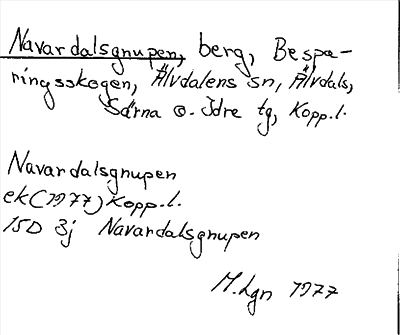 Navardalsgnupen, berg, Bespa-
ringsskogen, Älvdalens sn, Älvdals,
Särna o. Idre tg, Kopp.l.
Navardalsgnupen
ek (1977) Kopp.l.
15D 3j Navardalsgnupen
M.Lgn 1977